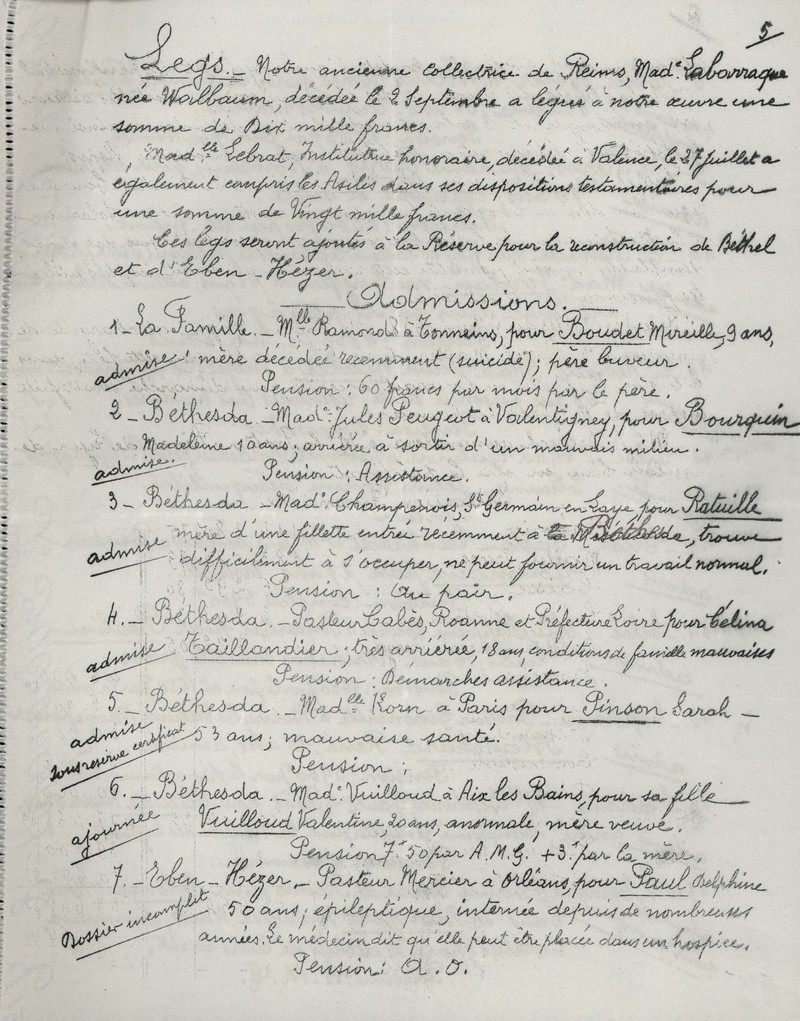 5
Legs._ Notre ancienne collectrice de Reims, Mad.e Labarraque
née Walbaum, décédée le 2 Septembre a légué à notre œuvre une
somme de Dix mille francs.
Mad.lle Lebrat, Institutrice honoraire, décédée à Valence, le 27 Juillet a
également compris les Asiles dans ses dispositions testamentaires pour
une somme de Vingt mille francs.
Ces legs seront ajoutés à la Réserve pour la reconstruction de Béthel
et d'Eben-Hézer.
Admissions.
1_ La Famille._ M.lle Ramond à Tonneins, pour Boudet Mireille, 9 ans,
admise mère décédée récemment (suicide); père buveur.
Pension : 60 francs par mois par le père.
2_ Béthesda _ Mad.e Jules Peugeot à Valentigney, pour Bourquin
Madeleine 10 ans; arriérée, à sortir d'un mauvais milieu.
admise. Pension : Assistance.
3_ Béthesda _ Mad.e Champenois, St Germain en Laye pour Ratuille
admise mère d'une fillette entrée récemment à Béthesda, trouve
difficilement à s'occuper, ne peut fournir un travail normal.
Pension : Au pair.
4._ Béthesda._ Pasteur Cabès, Roanne et Préfecture Loire pour Célina
admise Taillandier; très arriérée, 18 ans, conditions de famille mauvaises
Pension : Démarches assistance.
5._ Béthesda._ Mad.lle Korn à Paris pour Pinson Sarah _
admise sous réserve certificat 53 ans; mauvaise santé.
Pension :
6._ Béthesda._ Mad.e Vuilloud à Aix les Bains, pour sa fille
ajournée Vuilloud Valentine, 20 ans, anormale, mère veuve.
Pension 7f 50 par A.M.G. + 3f par la mère.
7._ Eben-Hézer._ Pasteur Mercier à Orléans, pour Paul Delphine
Dossier incomplet 50 ans; épileptique, internée depuis de nombreuses
années. Le médecin dit qu'elle peut être placée dans un hospice.
Pension: A.O.